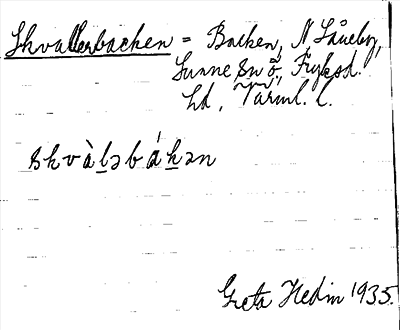 Skvallerbacken = Backen, N Låneby,
Sunne sn ö. Fryksd.
hd, Värml. l.
skvàl̲əbák̲ən
Greta Hedin 1935.